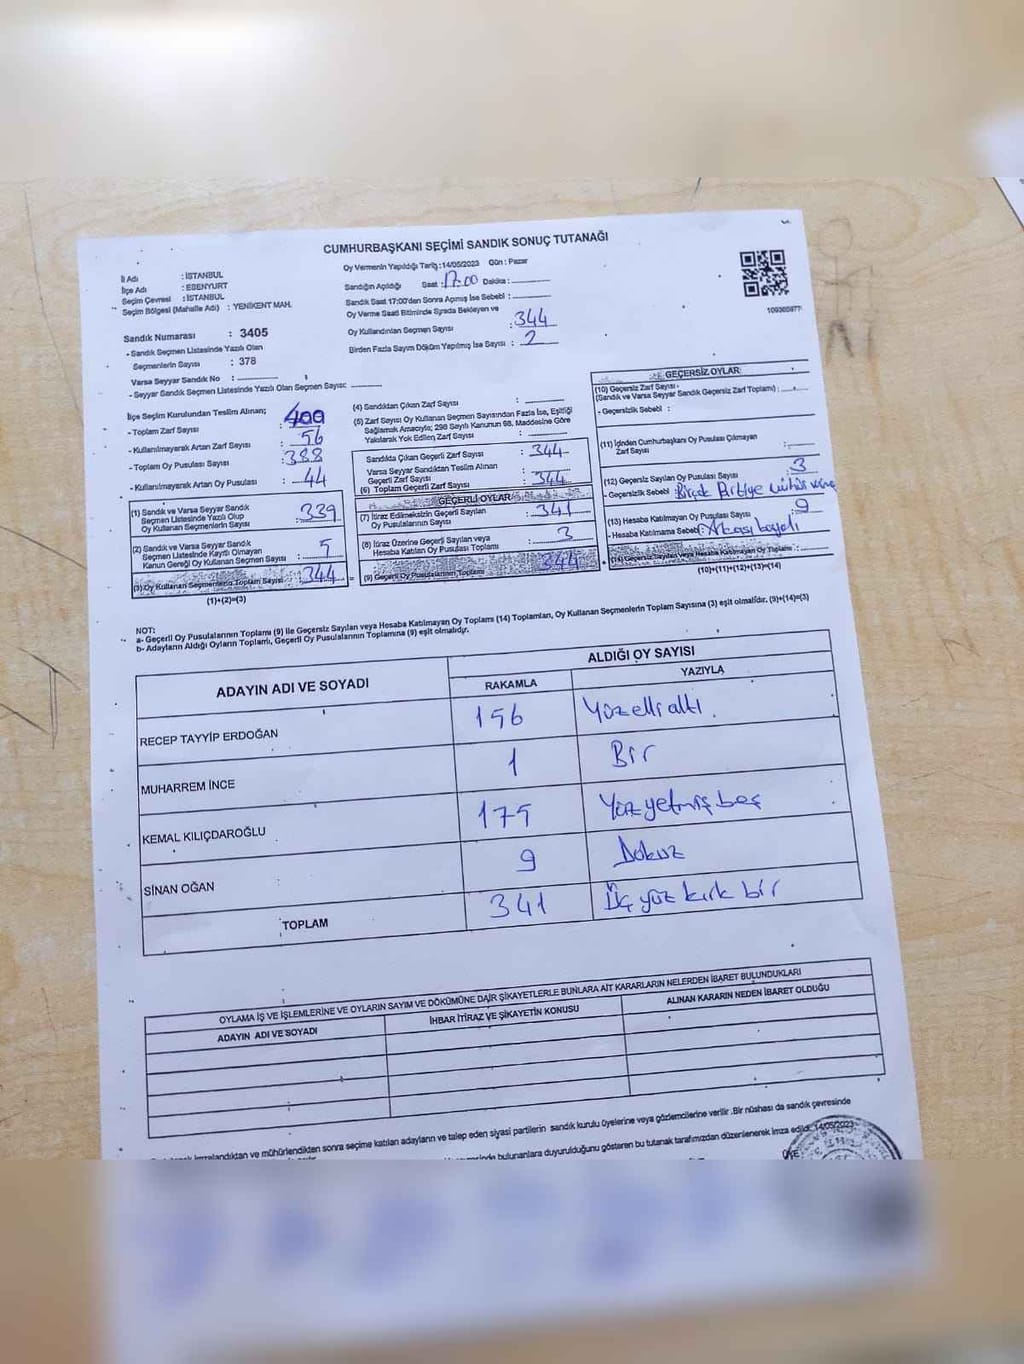 CUMHURBAŞKANI SEÇİMİ SANDIK SONUÇ TUTANAĞI
İl Adı : İSTANBUL
İlçe Adı : ESENYURT
Seçim Çevresi : İSTANBUL
Seçim Bölgesi (Mahalle Adı) : YENİKENT MAH.
Sandık Numarası : 3405
- Sandık Seçmen Listesinde Yazılı Olan
Seçmenlerin Sayısı : 378
Varsa Seyyar Sandık No :
- Seyyar Sandık Seçmen Listesinde Yazılı Olan Seçmen Sayısı:
Oy Vermenin Yapıldığı Tarih :14/05/2023 Gün : Pazar
Sandığın Açıldığı Saat : 17:00 Dakika :
Sandık Saat 17:00'den Sonra Açılmış İse Sebebi :
Oy Verme Saati Bitiminde Sırada Bekleyen ve
Oy Kullandırılan Seçmen Sayısı : 344
Birden Fazla Sayım Döküm Yapılmış İse Sayısı : 2
İlçe Seçim Kurulundan Teslim Alınan;
- Toplam Zarf Sayısı : 400
- Kullanılmayarak Artan Zarf Sayısı : 56
- Toplam Oy Pusulası Sayısı : 388
- Kullanılmayarak Artan Oy Pusulası : 44
(1) Sandık ve Varsa Seyyar Sandık
Seçmen Listesinde Yazılı Olup
Oy Kullanan Seçmenlerin Sayısı : 339
(2) Sandık ve Varsa Seyyar Sandık
Seçmen Listesinde Kayıtlı Olmayan
Kanun Gereği Oy Kullanan Seçmen Sayısı : 5
(3) Oy Kullanan Seçmenlerin Toplam Sayısı : 344
(1)+(2)=(3)
(4) Sandıktan Çıkan Zarf Sayısı :
(5) Zarf Sayısı Oy Kullanan Seçmen Sayısından Fazla İse, Eşitliği
Sağlamak Amacıyla; 298 Sayılı Kanunun 98. Maddesine Göre
Yakılarak Yok Edilen Zarf Sayısı :
Sandıkta Çıkan Geçerli Zarf Sayısı : 344
Varsa Seyyar Sandıktan Teslim Alınan
Geçerli Zarf Sayısı :
(6) Toplam Geçerli Zarf Sayısı : 344
GEÇERLİ OYLAR
(7) İtiraz Edilmeksizin Geçerli Sayılan
Oy Pusulalarının Sayısı : 341
(8) İtiraz Üzerine Geçerli Sayılan veya
Hesaba Katılan Oy Pusulası Toplamı : 3
(9) Geçerli Oy Pusulalarının Toplamı : 344
GEÇERSİZ OYLAR
(10) Geçersiz Zarf Sayısı -
(Sandık ve Varsa Seyyar Sandık Geçersiz Zarf Toplamı) :
- Geçersizlik Sebebi :
(11) İçinden Cumhurbaşkanı Oy Pusulası Çıkmayan
Zarf Sayısı :
(12) Geçersiz Sayılan Oy Pusulası Sayısı : 3
- Geçersizlik Sebebi : Birçok Partiye mühür
(13) Hesaba Katılmayan Oy Pusulası Sayısı : 9
- Hesaba Katılmama Sebebi : Arkası boyalı
(14) Geçersiz Sayılan veya Hesaba Katılmayan Oy Toplamı :
(10)+(11)+(12)+(13)=(14)
NOT:
a- Geçerli Oy Pusulalarının Toplamı (9) ile Geçersiz Sayılan veya Hesaba Katılmayan Oy Toplamı (14) Toplamları, Oy Kullanan Seçmenlerin Toplam Sayısına (3) eşit olmalıdır. (9)+(14)=(3)
b- Adayların Aldığı Oyların Toplamı, Geçerli Oy Pusulalarının Toplamına (9) eşit olmalıdır.
ADAYIN ADI VE SOYADI ALDIĞI OY SAYISI
RAKAMLA YAZIYLA
RECEP TAYYİP ERDOĞAN 156 Yüz elli altı.
MUHARREM İNCE 1 Bir
KEMAL KILIÇDAROĞLU 175 Yüz yetmiş beş
SİNAN OĞAN 9 Dokuz
TOPLAM 341 Üç yüz kırk bir
OYLAMA İŞ VE İŞLEMLERİNE VE OYLARIN SAYIM VE DÖKÜMÜNE DAİR ŞİKAYETLERLE BUNLARA AİT KARARLARIN NELERDEN İBARET BULUNDUKLARI
ADAYIN ADI VE SOYADI İHBAR İTİRAZ VE ŞİKAYETİN KONUSU ALINAN KARARIN NEDEN İBARET OLDUĞU
imzalandıktan ve mühürlendikten sonra seçime katılan adayların ve talep eden siyasi partilerin sandık kurulu üyelerine veya gözlemcilerine verilir .Bir nüshası da sandık çevresinde
bulunanlara duyurulduğunu gösteren bu tutanak tarafımızdan düzenlenerek imza edildi. 14/05/2023
ÜYE